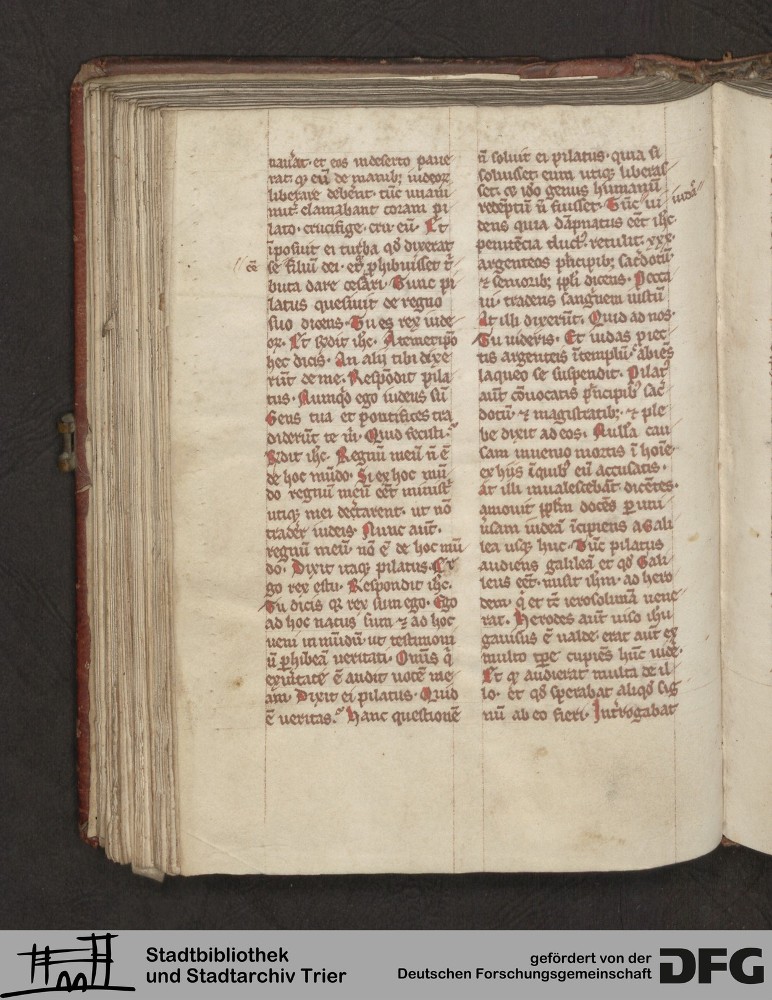 nauͣat· et eos in deserto paue
rat· ꝙ eū de manib; iudeoꝝ
liberare deberēt· tūc unani
mit᷑ clamabant coram pi
lato· crucifige· cru· eū· Et
īposuit ei turba qd̄ dixerat
cē
se filiū dei· et ꝓhibuisset t̄
buta dare cesari· Tunc pi
latus quesiuit de regno
suo dicens· Tu es rex iude
oꝝ· Et r̄ndit ih̄c· A temetip̄o
hec dicis· An alij tibi dixe
rūt de me· Respōdit pila
tus· Nunqͥd ego iudeus sū
Gens tua et pontifices tra
diderūt te m̄· Quid fecisti·
R̄ndit ih̄c· Regnū meū n̄ ē
de hoc mūdo· Si ex hoc mū
do regnū meū eēt minist᷑
utiqꝫ mei dec̄tarent· ut nō
trader̄ iudeis· Nunc aūt·
regnū meū nō ē de hoc mū
do· Dixit itaqꝫ pilatus· Er
go rex es tu· Respondit ih̄c·
Tu dicis qꝛ rex sum ego· Ego
ad hoc natus sum ⁊ ad hoc
ueni in mūdū ut testimoni
ū ꝓhibeā ueritati· Omīs q̄
ex ūitate ē audit uocē me
am· Dixit ei pilatus· Quid
ē ueritas· Hanc questionē
n̄ soluit ei pilatus· quia si
soluisset· eum utiqꝫ liberas
set· ⁊ īdo genus humanū
redēptū n̄ fuisset· Tūc ui
iudā
dens quia dāpnatus eēt ih̄c·
penitēcia duct᷒· retulit· xxx·
argenteos pͥncipib; sacͣdotū·
⁊ seniorib; ipͥs dicens· Pecca
ui· tradens sanguinem iustū
At illi dixerūt· Quid ad nos·
Tu uideris· Et iudas ꝓiec
tis argenteis ī templū· abiēs
laqueo se suspendit· Pilat᷒
aūt cōuocatis pͥncipib᷒ sac̄
dotū· ⁊ magistratib; ⁊ ple
be dixit ad eos· Nullā cau
sam inuenio mortis ī hoīe·
ex hijs ī quib᷒ eū accusatis·
At illi inualescebāt dicētes·
amouit ip̄lm docēs ꝑ uni
ūsam iudeā īcipiens a Gali
lea usqꝫ huc· Tūc pilatus
audiens galileā et qd̄ Gali
leus eēt· misit ih̄m· ad hero
dem· q̄ et tc̄ ierosolimā uene
rat· Herodes aūt uiso ih̄u
gauisus ē ualde· erat aūt ex
multo tp̄e cupiēs hūc uidē·
Et ꝙ audierat multa de il
lo· et qd̄ sperabat aliqd̄ sig
nū ab eo fieri· Int̄rogabat
Stadtbibliothek
und Stadtarchiv Trier
gefördert von der
Deutschen Forschungsgemeinschaft
DFG